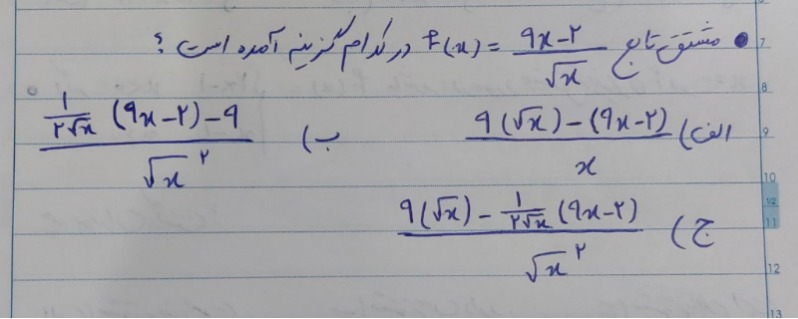 • مشتق تابع f(x) = (9x-۲)/√x در کدام گزینه آمده است ؟
الف) (9(√x) - (9x-۲))/x    ب) (1/(۲√x) (9x-۲) - 9)/√x^۲
ج) (9(√x) - 1/(۲√x) (9x-۲))/√x^۲
7
8
9
10
11
12
13